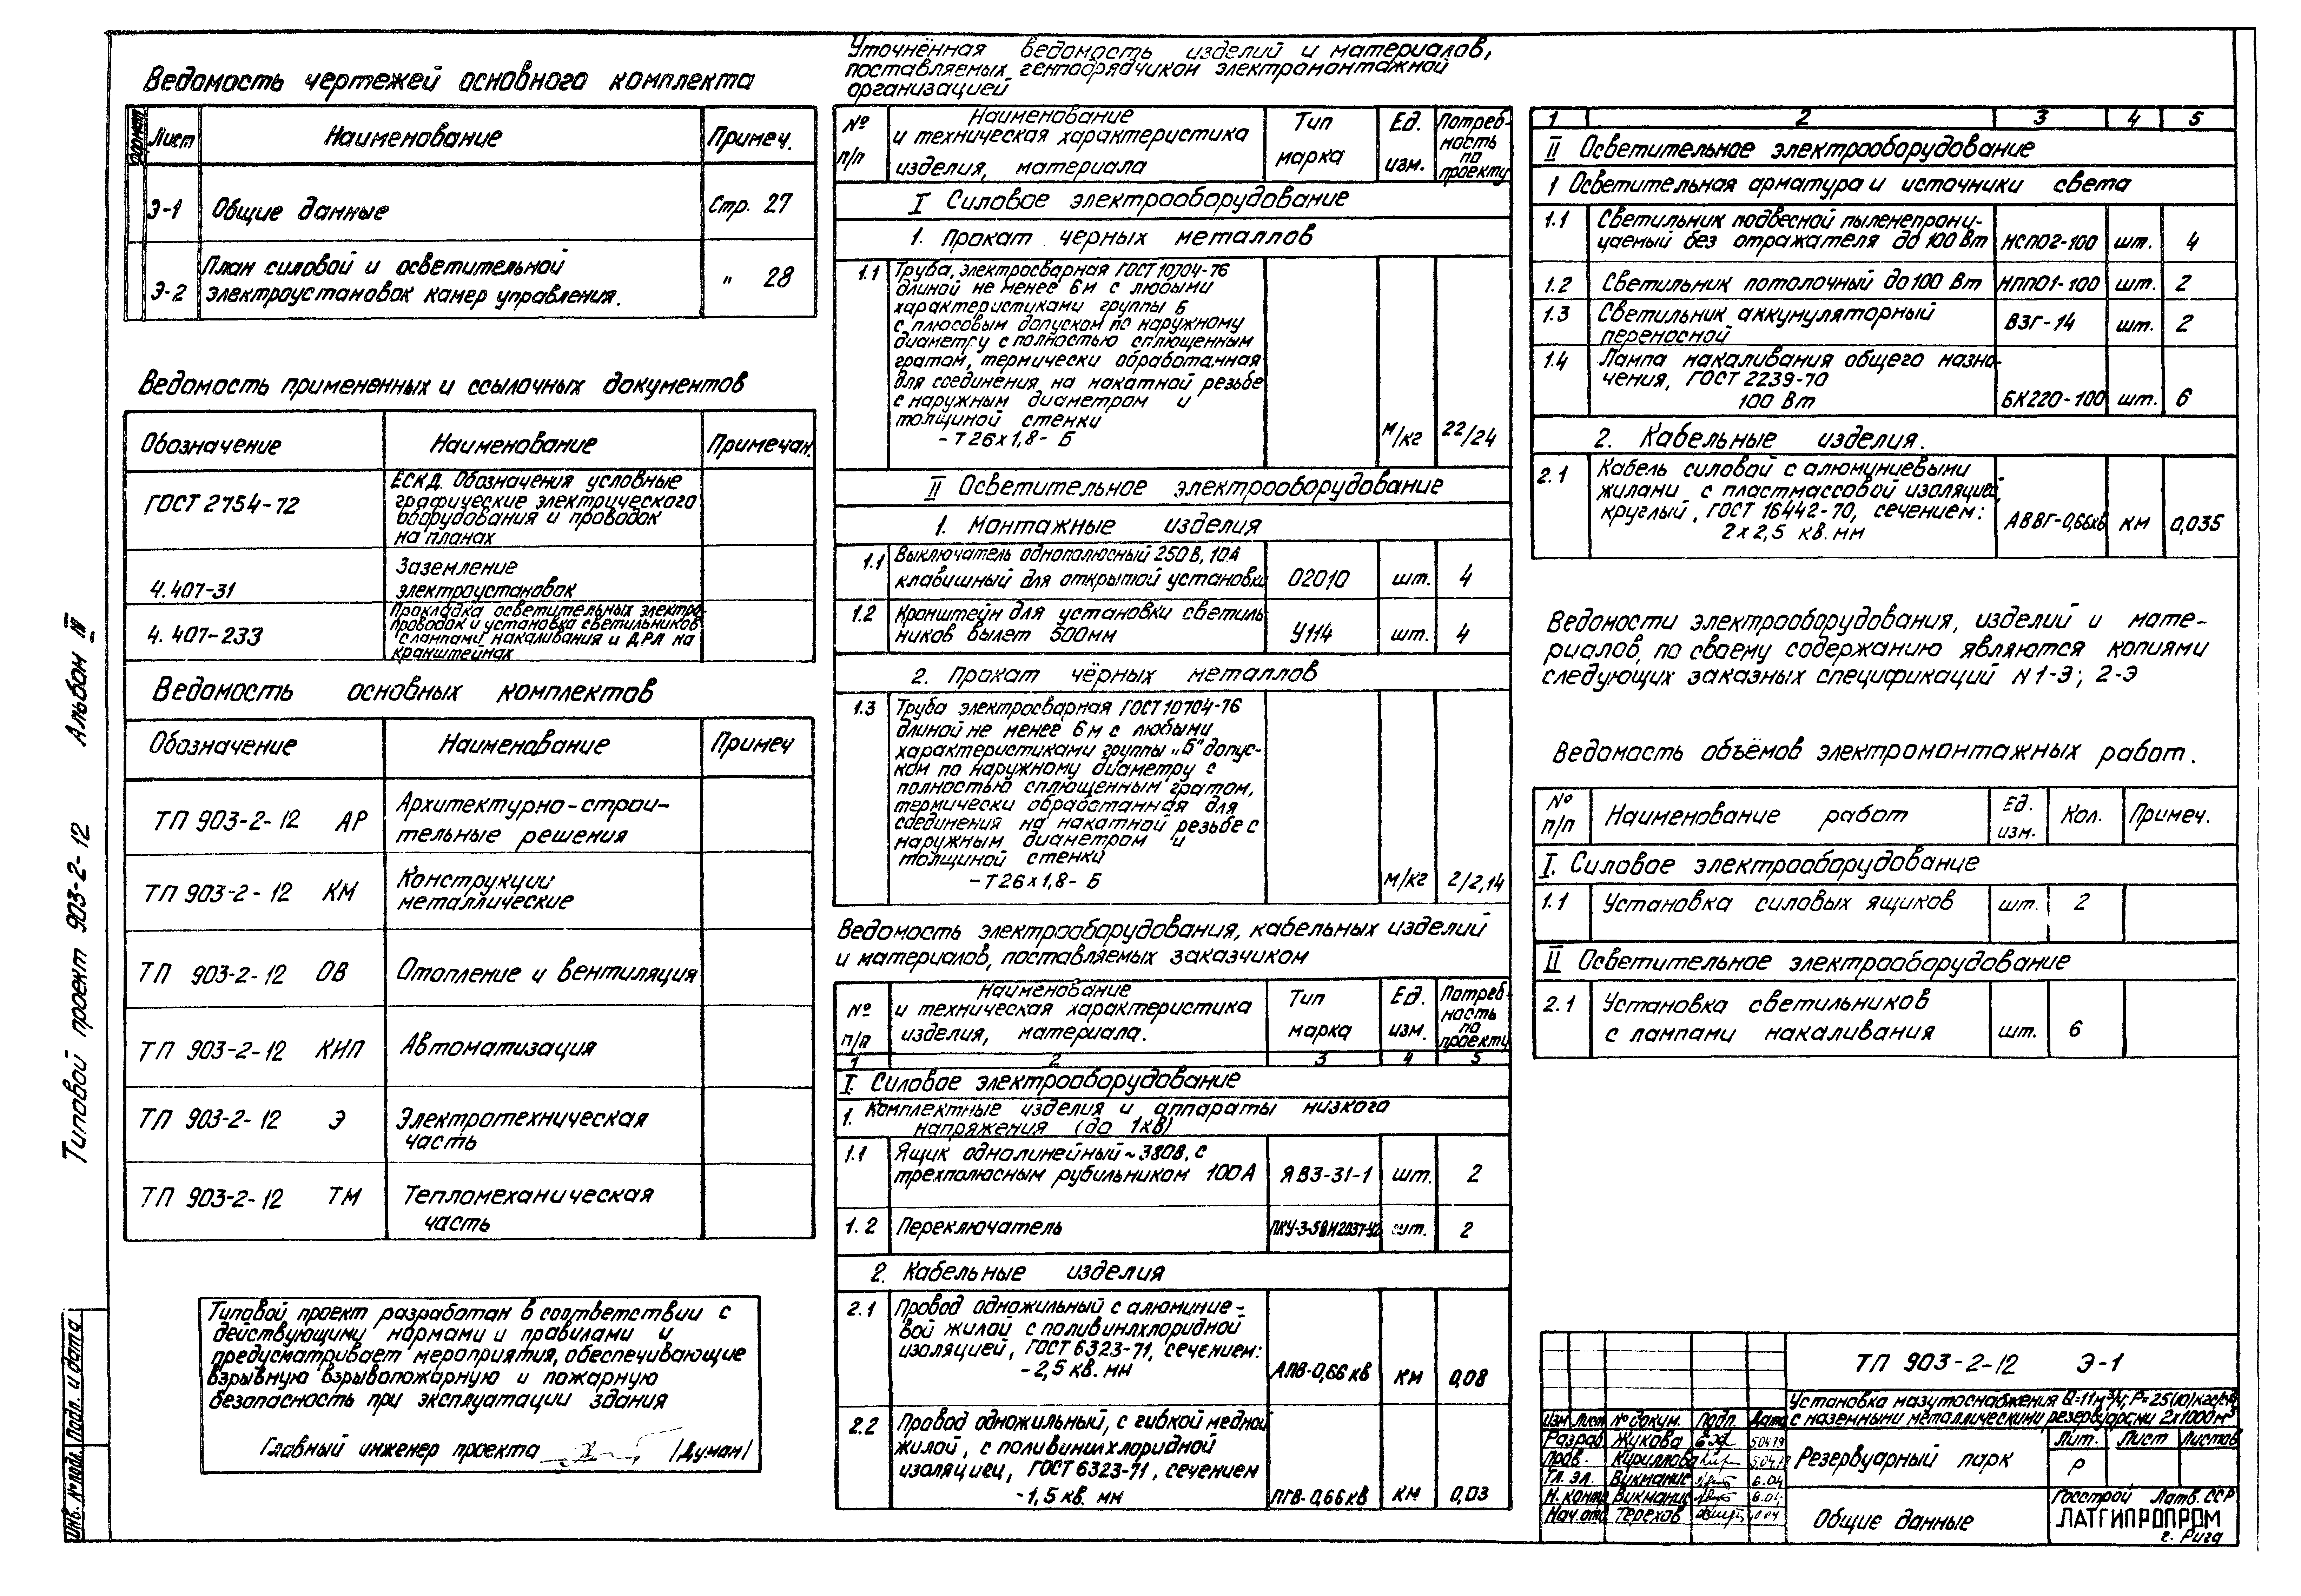 Ведомость чертежей основного комплекта
формат Лист Наименование Примеч.
Э-1 Общие данные Стр. 27
План силовой и осветительной
Э-2 электроустановок камер управления. " 28
Ведомость примененных и ссылочных документов
Обозначение Наименование Примечан.
ГОСТ 2754-72 ЕСКД. Обозначения условные
графические электрического
оборудования и проводок
на планах
4.407-31 Заземление
электроустановок
4.407-233 Прокладка осветительных электро-
проводок и установка светильников
с лампами накаливания и ДРЛ на
кранштейнах
Ведомость основных комплектов
Обозначение Наименование Примеч
ТП 903-2-12 АР Архитектурно-строи-
тельные решения
ТП 903-2-12 КМ Конструкции
металлические
ТП 903-2-12 ОВ Отопление и вентиляция
ТП 903-2-12 КИП Автоматизация
ТП 903-2-12 Э Электротехническая
часть
ТП 903-2-12 ТМ Тепломеханическая
часть
Типовой проект разработан в соответствии с
действующими нормами и правилами и
предусматривает мероприятия, обеспечивающие
взрывную взрывопожарную и пожарную
безопасность при эксплуатации здания
Главный инженер проекта /Думан/
Типовой проект 903-2-12 Альбом IV
Инв. № подл. Подп. и дата
Уточнённая ведомость изделий и материалов,
поставляемых генподрядчиком электромонтажной
организацией
№ п/п Наименование и техническая характеристика изделия, материала Тип марка Ед. изм. Потреб-ность по проекту
I Силовое электрооборудование
1. Прокат черных металлов
1.1 Труба, электросварная ГОСТ 10704-76
длиной не менее 6м с любыми
характеристиками группы Б
с плюсовым допуском по наружному
диаметру с полностью сплющенным
гратом, термически обработанная
для соединения на накатной резьбе
с наружным диаметром и
толщиной стенки
-Т26х1,8- Б м/кг 22/24
II Осветительное электрооборудование
1. Монтажные изделия
1.1 Выключатель однополюсный 250В, 10А
клавишный для открытой установки 02010 шт. 4
1.2 Кронштейн для установки светиль-
ников вылет 500мм У114 шт. 4
2. Прокат чёрных металлов
1.3 Труба электросварная ГОСТ 10704-76
длиной не менее 6м с любыми
характеристиками группы „Б" допус-
ком по наружному диаметру с
полностью сплющенным гратом,
термически обработанная для
соединения на накатной резьбе с
наружным диаметром и
толщиной стенки
-Т26х1,8- Б м/кг 2/2,14
Ведомость электрооборудования, кабельных изделий
и материалов, поставляемых заказчиком
№ п/п Наименование и техническая характеристика изделия, материала. Тип марка Ед. изм. Потреб-ность по проекту
1 2 3 4 5
I. Силовое электрооборудование
1. Комплектные изделия и аппараты низкого
напряжения (до 1кВ)
1.1 Ящик однолинейный ~380В, с
трехполюсным рубильником 100А ЯВЗ-31-1 шт. 2
1.2 Переключатель шт. 2
2. Кабельные изделия
2.1 Провод одножильный с алюминие-
вой жилой с поливинлхлоридной
изоляцией, ГОСТ 6323-71, сечением:
-2,5 кв. мм АПВ-0,66кв км 0,08
2.2 Провод одножильный, с гибкой медной
жилой, с поливинилхлоридной
изоляцией, ГОСТ 6323-71, сечением
-1,5 кв. мм ПГВ-0,66кв км 0,03
1 2 3 4 5
II Осветительное электрооборудование
1 Осветительная арматура и источники света
1.1 Светильник подвесной пыленепрони-
цаемый без отражателя до 100 Вт НСП02-100 шт. 4
1.2 Светильник потолочный до 100 Вт НПП01-100 шт. 2
1.3 Светильник аккумуляторный
переносной ВЗГ-14 шт. 2
1.4 Лампа накаливания общего назна-
чения, ГОСТ 2239-70
100 Вт БК220-100 шт. 6
2. Кабельные изделия.
2.1 Кабель силовой с алюминиевыми
жилами с пластмассовой изоляцией,
круглый, ГОСТ 16442-70, сечением:
2х2,5 кв. мм АВВГ-0,66кв км 0,035
Ведомости электрооборудования, изделий и мате-
риалов, по своему содержанию являются копиями
следующих заказных спецификаций N1-Э; 2-Э
Ведомость объёмов электромонтажных работ.
№ п/п Наименование работ Ед. изм. Кол. Примеч.
I. Силовое электрооборудование
1.1 Установка силовых ящиков шт. 2
II Осветительное электрооборудование
2.1 Установка светильников
с лампами накаливания шт. 6
ТП 903-2-12 Э-1
Установка мазутоснабжения Q-11м³/ч, Р=25(10)кгс/см²
с наземными металлическими резервуарами 2х1000м³
Изм Лист № докум. подп. Дата
Разраб Жукова 5.04.79
Пров. Кириллова 5.04.79
Гл. эл. Викманис 6.04
Н. контр Викманис 6.04
Нач.отд Терехов
Резервуарный парк
Лит. Лист Листов
Р
Общие данные
Госстрой Латв. ССР
ЛАТГИПРОПРОМ
г. Рига